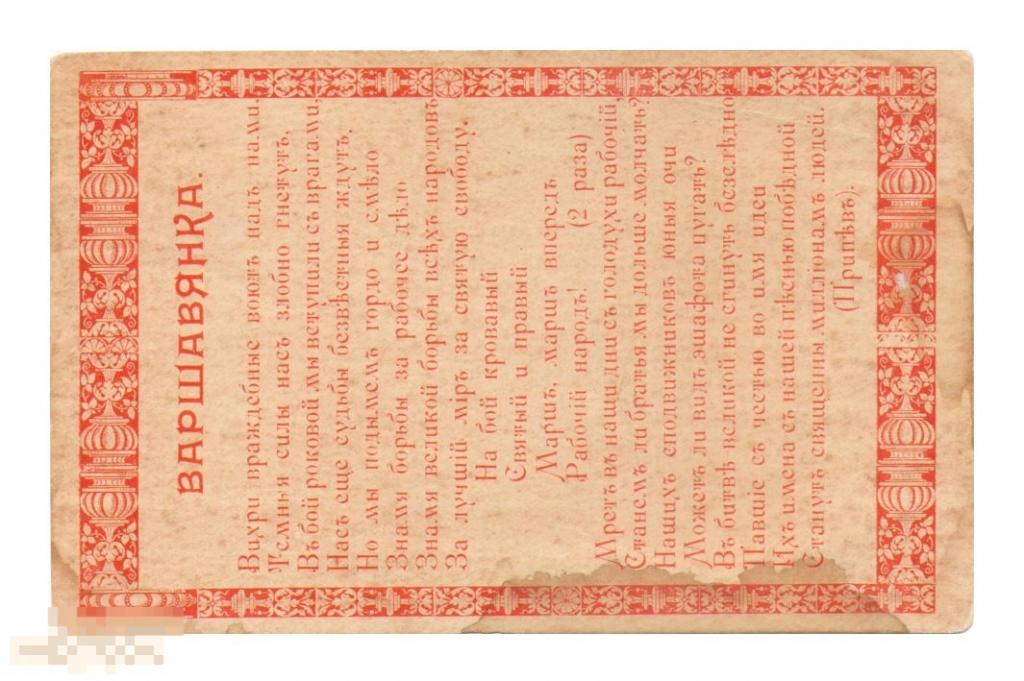 ВАРШАВЯНКА.
Вихри враждебные воютъ надъ нами.
Темныя силы насъ злобно гнетутъ,
Въ бой роковой мы вступили съ врагами,
Насъ еще судьбы безвѣстныя ждутъ.
Но мы подымемъ гордо и смѣло
Знамя борьбы за рабочее дѣло
Знамя великой борьбы всѣхъ народовъ
За лучшій міръ за святую свободу.
На бой кровавый
Святый и правый
Маршъ, маршъ впередъ
Рабочій народъ! (2 раза)
Мретъ въ наши дни съ голодухи рабочій,
Станемъ ли братья мы дольше молчать?
Нашихъ сподвижниковъ юныя очи
Можетъ ли видъ эшафота пугать?
Въ битвѣ великой не сгинутъ безслѣдно
Павшіе съ честью во имя идеи
Ихъ имена съ нашей пѣснью побѣдной
Станутъ священны милліонамъ людей.
(Припѣвъ).